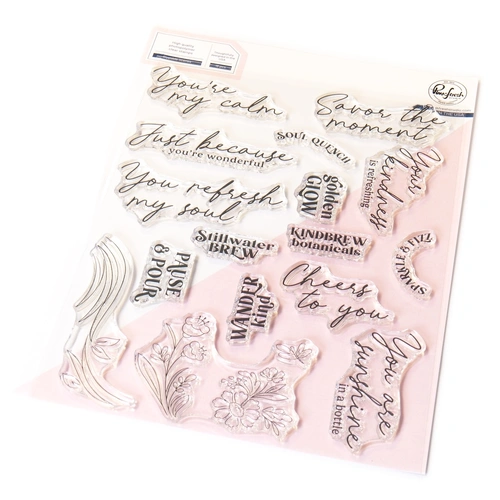 Pinkfresh
You're
my calm
Savor the
moment
Just because
you're wonderful
SOUL QUENCH
Your
kindness
is refreshing
You refresh
my soul
golden
GLOW
Stillwater
BREW
KINDBREW
botanicals
SPARKLE & FIZZ
PAUSE
& POUR
WANDER
kind
Cheers
to you
You are
sunshine
in a bottle